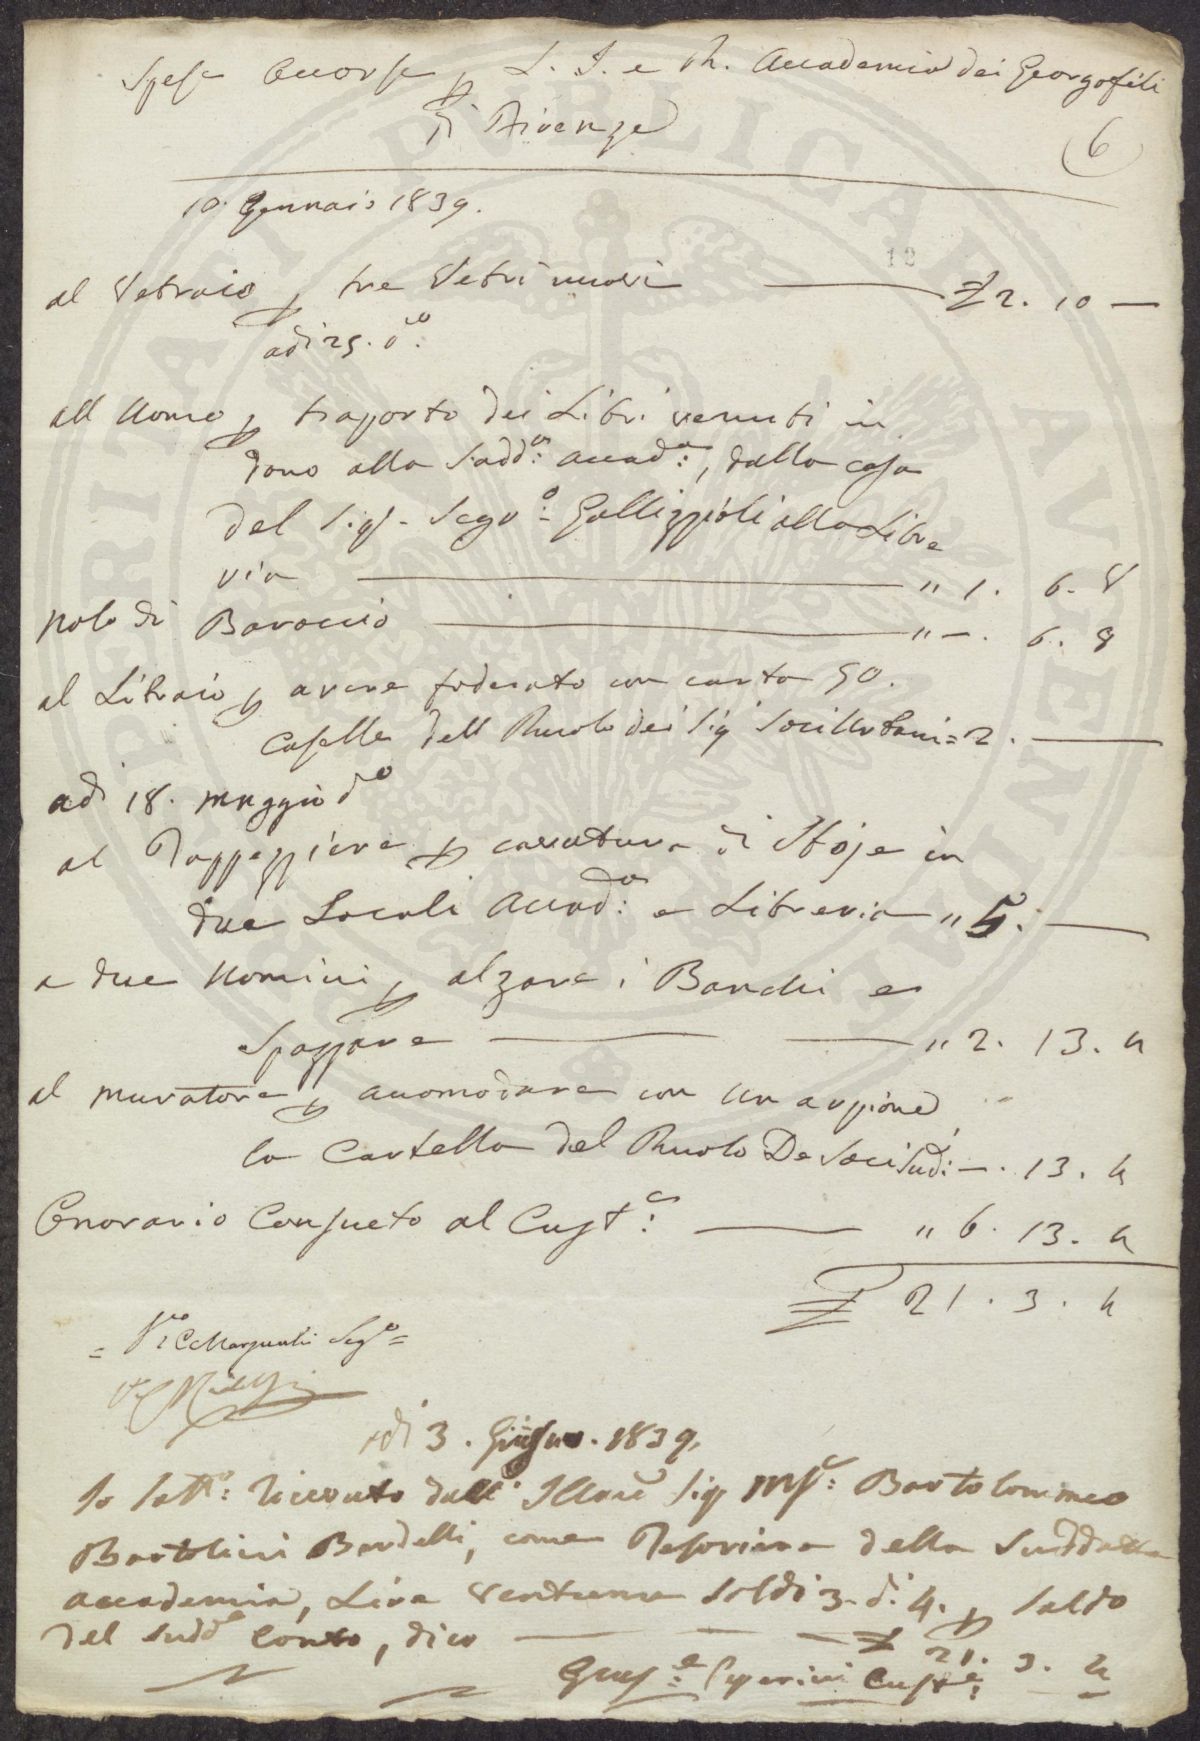 Spese occorse p L. I. e R. Accademia dei Georgofili
di Firenze
(6
10 Gennaio 1839.
12
al Vetraio p tre Vetri nuovi £ 2. 10 —
adi 25. do.
all Uomo p traporto dei Libri venuti in
dono alla Sudda: Accada:, dalla casa
del Sigr. Sego: Gallizzioli alla Libre
ria " 1. 6. 8
Nolo di Baroccio " —. 6. 8
al Libraio p avere foderato con carta 50.
Caselle dell Ruolo dei Sigi Soci = 2. —
adi 18. Maggio do
al Tappezziere p di Stoje in
due Locali Accada: e Libreria " 5. —
a due Uomini p alzare i Banchi e
Spazzare " 2. 13. 4
al muratore p accomodare con un arpione
la Cartella del Ruolo De Soci Sudi — . 13. 4
Onorario Consueto al Custe: " 6. 13. 4
£ 21. 3. 4
= Vo Sego =
adi 3. Giugno. 1839.
Io Sotto: ricevuto dall' Illmo Sig Bartolommeo
Bartolini Bardelli, come Tesoriere della Suddetta
accademia, Lire Ventuna Soldi 3. di 4. p Saldo
del Suddo Conto, dico £ 21. 3. 4
Giuse: Peperini Custe: